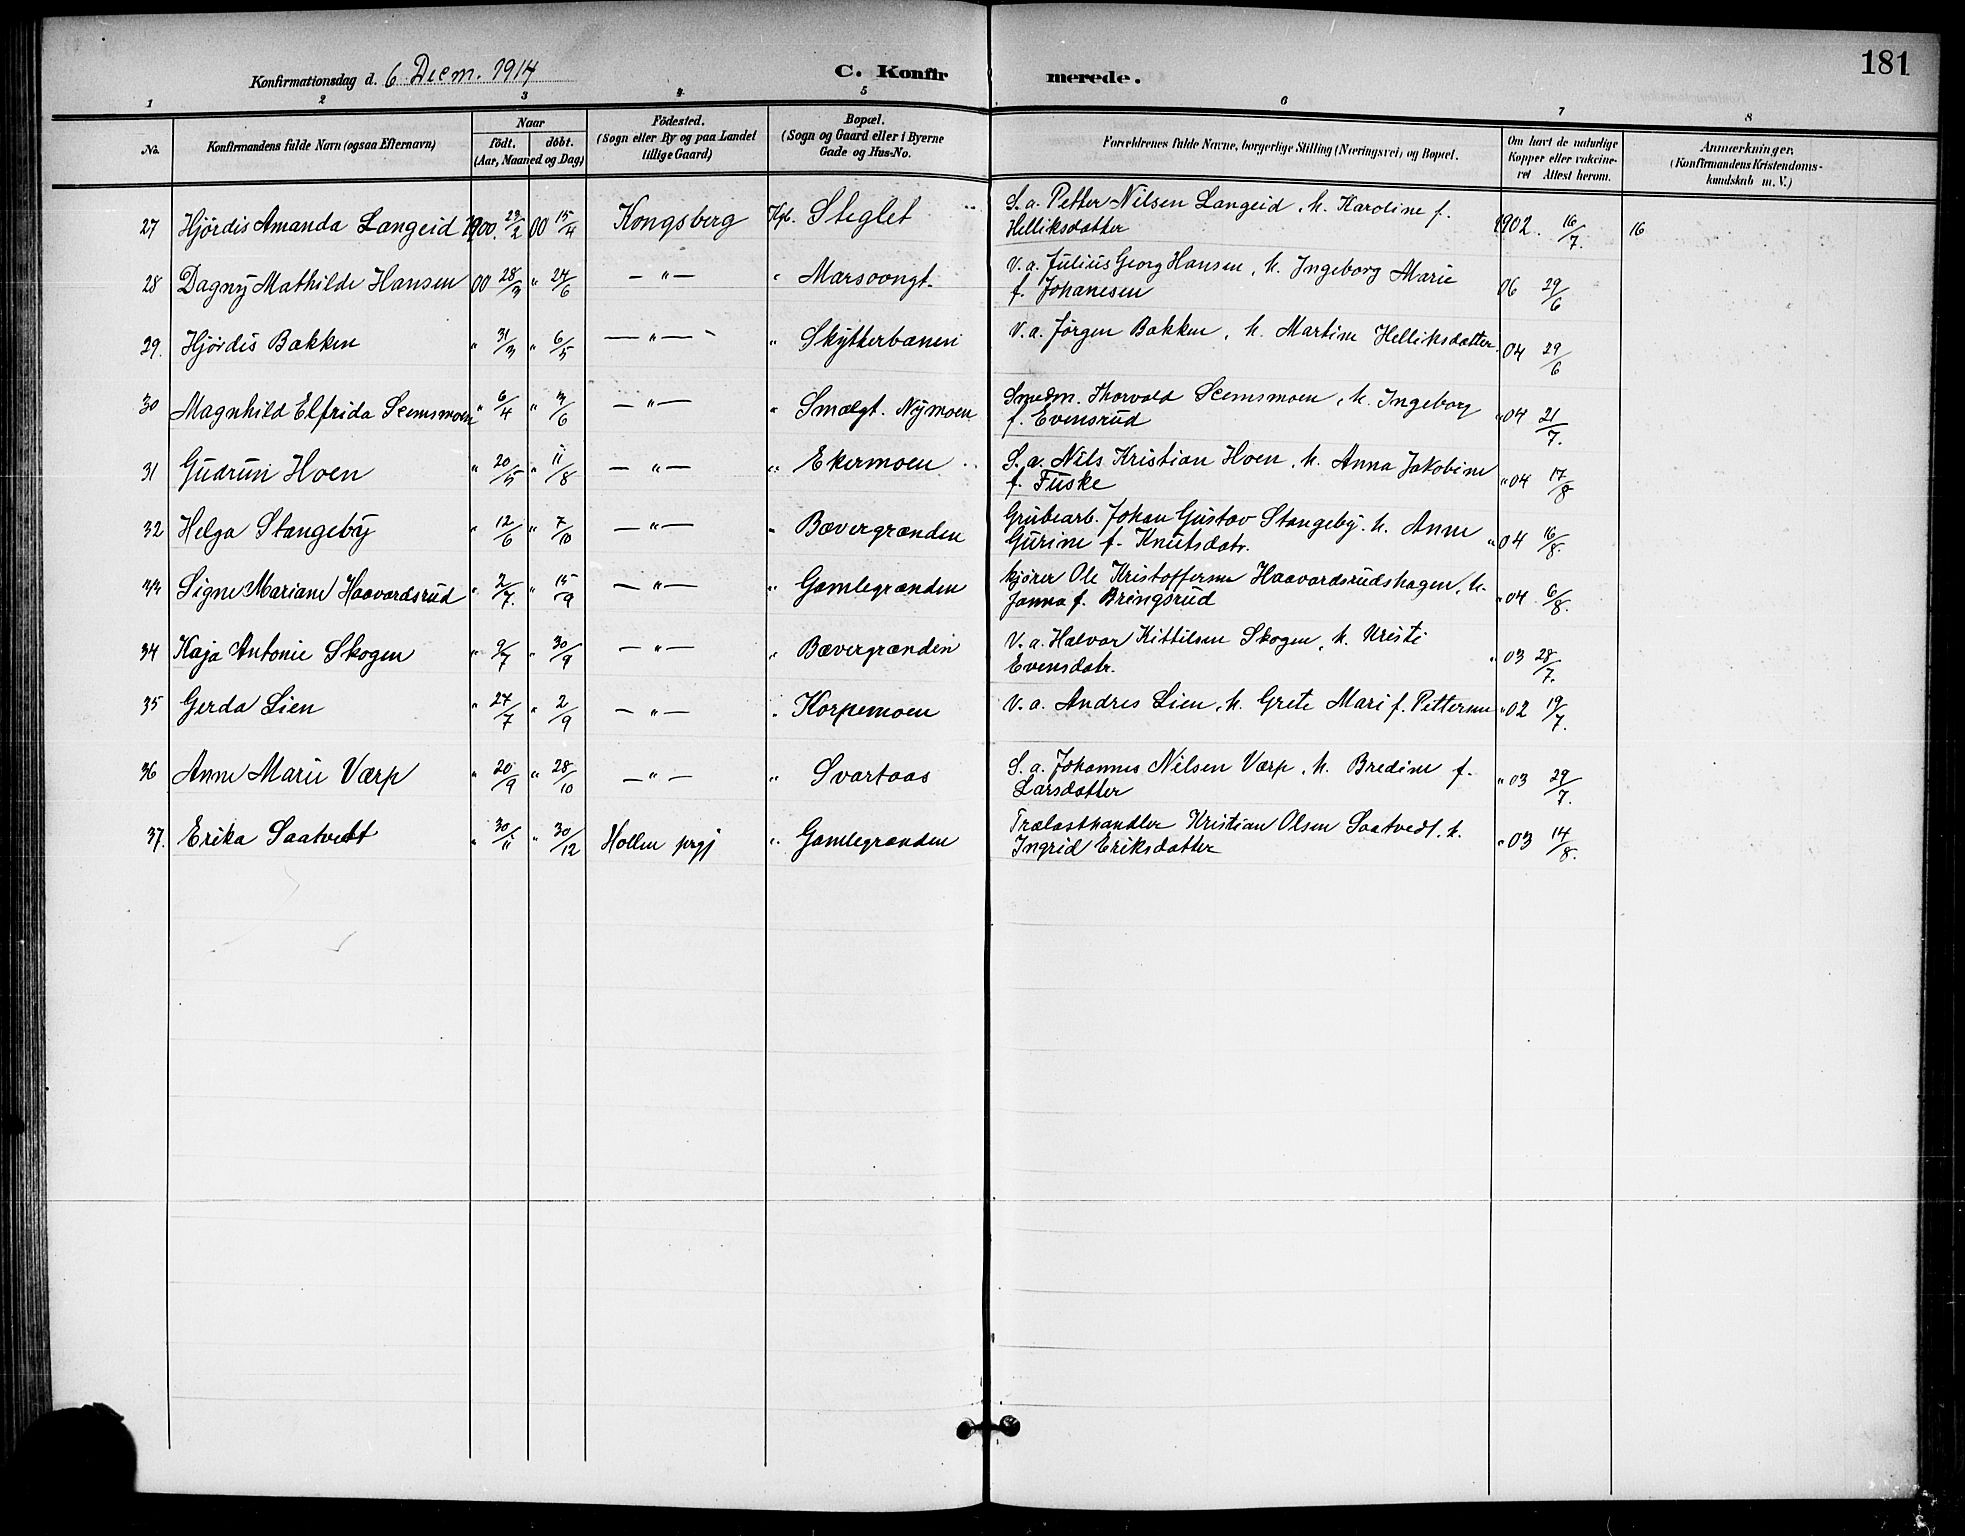 181
Konfirmationsdag d. 6 Decm. 1914
C. Konfirmerede.
1 2 3 4 5 6 7 8
No. | Konfirmandens fulde Navn (ogsaa Efternavn) | Naar födt. döbt. (Aar, Maaned og Dag) | Födested. (Sogn eller By og paa Landet tillige Gaard) | Bopæl. (Sogn og Gaard eller i Byerne Gade og Hus-No. | Forældrenes fulde Navne, borgerlige Stilling (Næringsvei) og Bopæl. | Om havt de naturlige Kopper eller vakcineret Attest herom. | Anmærkninger. (Konfirmandens Kristendomskundskab m. V.)
27 Hjördis Amanda Langeid 1900 29/2 00 15/4 Kongsberg Kgb. Steglet S.a. Petter Nilsen Langeid, h. Karoline f. Helliksdatter 1902 16/7. 16
28 Dagny Mathilde Hansen 00 28/3 " 24/6 — " — " Marsoongt. V.a. Julius Georg Hansen, h. Ingeborg Marie f. Johanesen 06 29/6
29. Hjördis Bakken " 31/3 " 6/5 — " — " Skytterbanen V.a. Jörgen Bakken, h. Martine Helliksdatter 04 29/6
30 Magnhild Elfrida Seemsmoen " 6/4 " 3/6 — " — " Smeltgt. Nymoen Smedm. Thorvald Seemsmoen, h. Ingeborg f. Evensrud " 04 21/7.
31 Gudrun Hoen " 20/5 " 11/8 — " — " Ekermoen S.a. Nils Kristian Hoen, h. Anna Jakobine f. Fuske " 04 17/8
32 Helga Stangeby " 12/6 " 7/10 — " — " Bævergrænden Grubearb. Johan Gustav Stangeby. h. Anne Gurine f. Knutsdatr. " 04 16/8.
33 Signe Mariane Haavardsrud " 2/7. " 15/9 — " — " Gamlegrænden kjörer Ole Kristoffersen Haavardsrudshagen, h. Janna f. Bringsrud " 04 6/8.
34 Kaja Antonie Skogen " 9/7 " 30/9 — " — " Bævergrænden V.a. Halvor Kittilsen Skogen, h. Kristi Evensdatr. " 03 28/7.
35 Gerda Lien " 27/7 " 2/9 — " — " Korpemoen V.a. Andres Lien, h. Grete Mari f. Pettersen " 02 19/7.
36 Anne Marie Værp " 20/9 " 28/10 — " — " Svartaas S.a. Johannes Nilsen Værp, h. Bredine f. Larsdatter " 03 29/7.
37. Erika Saatvedt " 30/11 " 30/12 Hollen prgj " Gamlegrænden Trælasthandler Kristian Olsen Saatvedt, h. Ingrid Eriksdatter " 03 14/8.